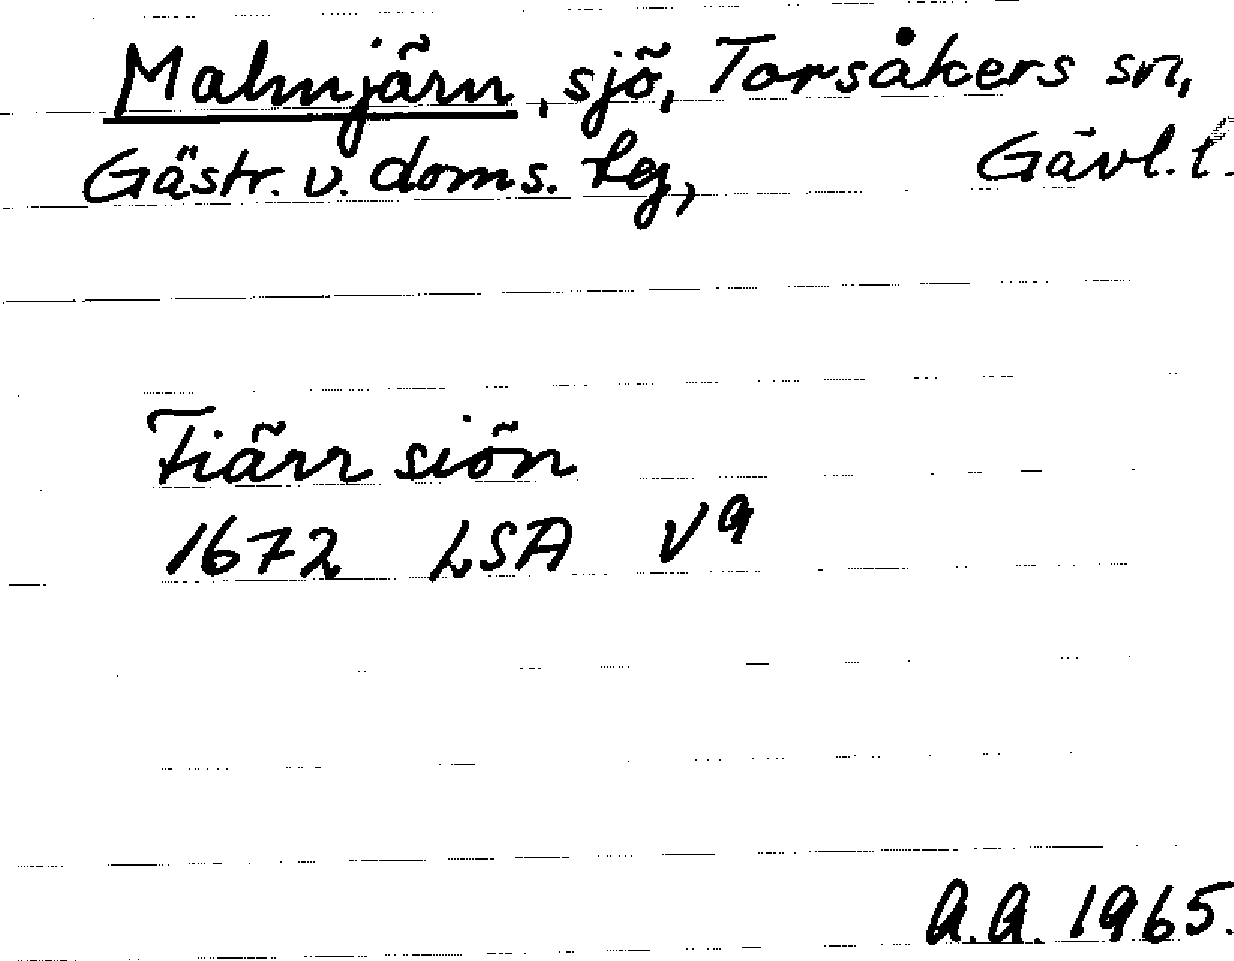 Malmjärn, sjö, Torsåkers sn,
Gästr. v. doms. hg, Gävl. l.
Fiärr siön
1672 LSA V9
A.A. 1965.